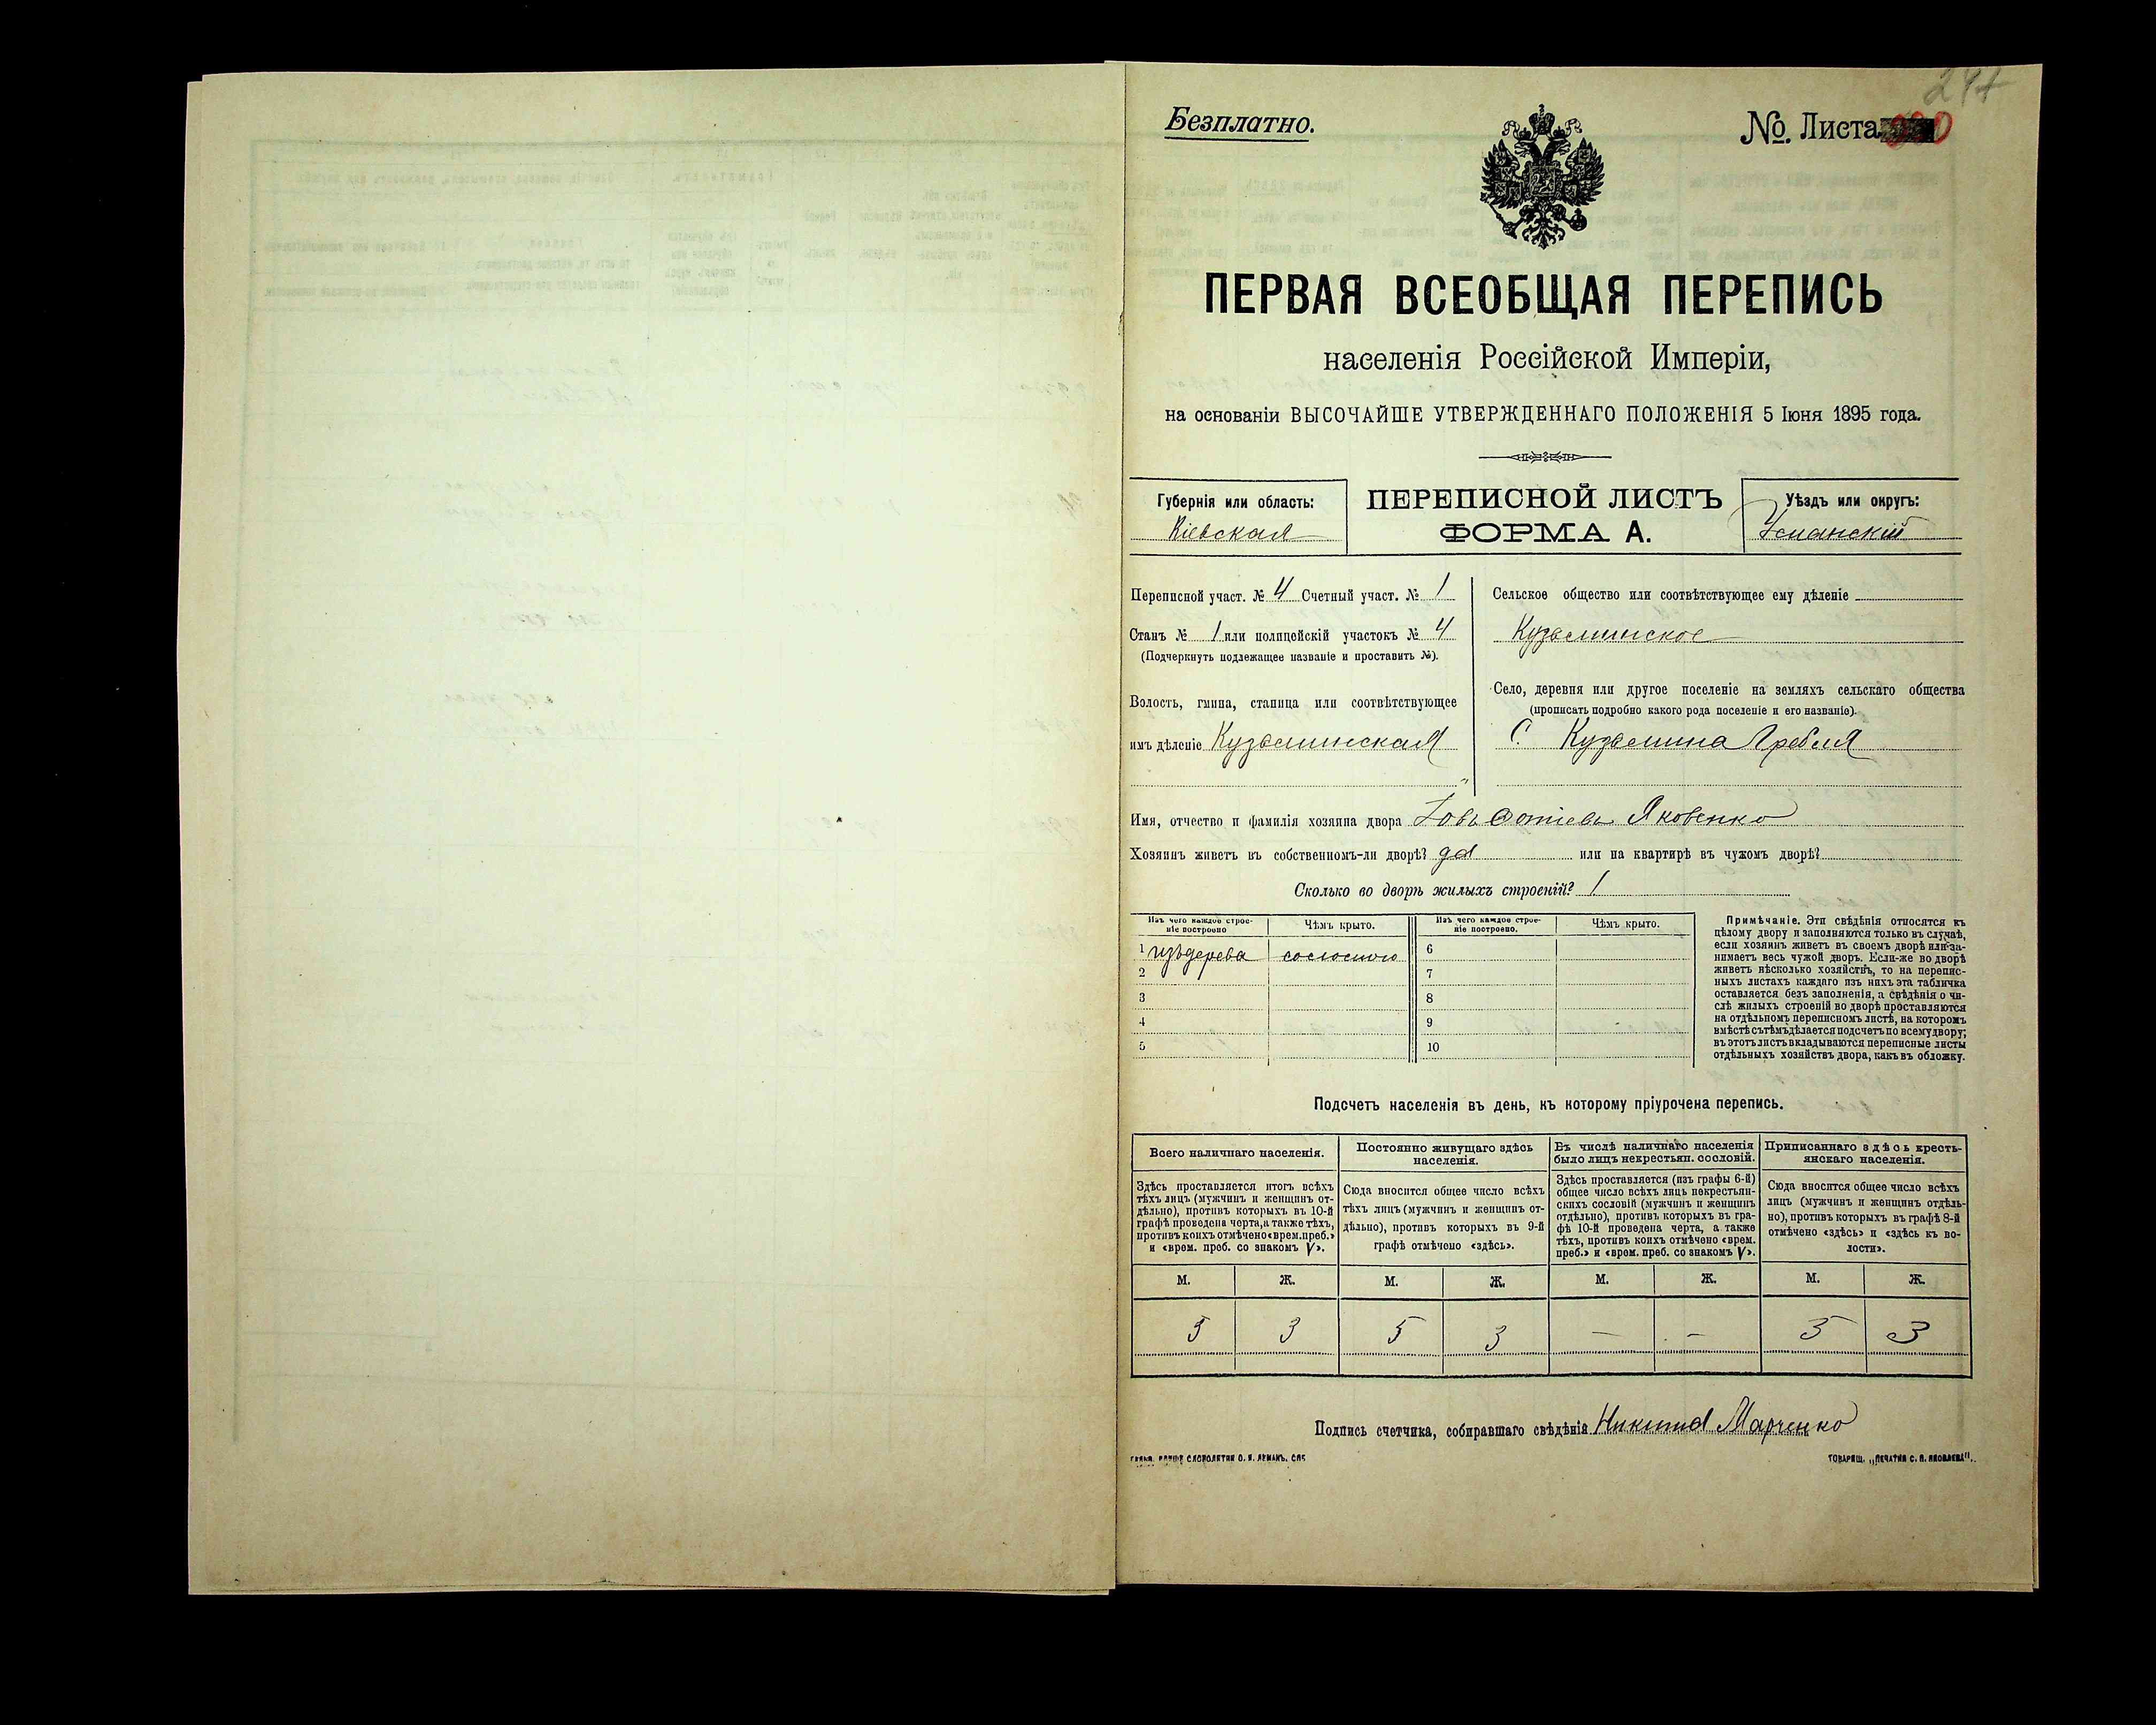 247
Безплатно.
№. Листа
ПЕРВАЯ ВСЕОБЩАЯ ПЕРЕПИСЬ
населенія Россійской Имперіи,
на основаніи ВЫСОЧАЙШЕ УТВЕРЖДЕННАГО ПОЛОЖЕНІЯ 5 Іюня 1895 года.
Губернія или область:
Кіевская
ПЕРЕПИСНОЙ ЛИСТЪ
ФОРМА А.
Уѣздъ или округъ:
Уманскій
Переписной участ. № 4 Счетный участ. № 1
Станъ № 1 или полицейскій участокъ № 4
(Подчеркнуть подлежащее названіе и проставить №).
Волость, гмина, станица или соотвѣтствующее
имъ дѣленіе Кузьминская
Сельское общество или соотвѣтствующее ему дѣленіе
Кузьминское
Село, деревня или другое поселеніе на земляхъ сельскаго общества
(прописать подробно какого рода поселеніе и его названіе).
С. Кузьмина Гребля
Имя, отчество и фамилія хозяина двора Іовъ Фотіевъ Яковенко
Хозяинъ живетъ въ собственномъ-ли дворѣ? да или на квартирѣ въ чужомъ дворѣ?
Сколько во дворѣ жилыхъ строеній? 1
Изъ чего каждое строе-
ніе построено
Чѣмъ крыто.
Изъ чего каждое строе-
ніе построено.
Чѣмъ крыто.
1 изъ дерева соломою 6
2 7
3 8
4 9
5 10
Примѣчаніе. Эти свѣдѣнія относятся къ
цѣлому двору и заполняются только въ случаѣ,
если хозяинъ живетъ въ своемъ дворѣ или за-
нимаетъ весь чужой дворъ. Если-же во дворѣ
живетъ нѣсколько хозяйствъ, то на перепис-
ныхъ листахъ каждаго изъ нихъ эта табличка
оставляется безъ заполненія, а свѣдѣнія о чи-
слѣ жилыхъ строеній во дворѣ проставляются
на отдѣльномъ переписномъ листѣ, на которомъ
вмѣстѣ съ тѣмъ дѣлается подсчетъ по всему двору;
въ этотъ листъ вкладываются переписные листы
отдѣльныхъ хозяйствъ двора, какъ въ обложку.
Подсчетъ населенія въ день, къ которому пріурочена перепись.
Всего наличнаго населенія.
Здѣсь проставляется итогъ всѣхъ
тѣхъ лицъ (мужчинъ и женщинъ от-
дѣльно), противъ которыхъ въ 10-й
графѣ проведена черта, а также тѣхъ,
противъ коихъ отмѣчено «врем. преб.»
и «врем. преб. со знакомъ V».
Постоянно живущаго здѣсь
населенія.
Сюда вносится общее число всѣхъ
тѣхъ лицъ (мужчинъ и женщинъ от-
дѣльно), противъ которыхъ въ 9-й
графѣ отмѣчено «здѣсь».
Въ числѣ наличнаго населенія
было лицъ некрестьян. сословій.
Здѣсь проставляется (изъ графы 6-й)
общее число всѣхъ лицъ некрестьян-
скихъ сословій (мужчинъ и женщинъ
отдѣльно), противъ которыхъ въ гра-
фѣ 10-й проведена черта, а также
тѣхъ, противъ коихъ отмѣчено «врем.
преб.» и «врем. преб. со знакомъ V».
Приписаннаго здѣсь кресть-
янскаго населенія.
Сюда вносится общее число всѣхъ
лицъ (мужчинъ и женщинъ отдѣль-
но), противъ которыхъ въ графѣ 8-й
отмѣчено «здѣсь» и «здѣсь къ во-
лости».
М. Ж. М. Ж. М. Ж. М. Ж.
5 3 5 3 — — 5 3
Подпись счетчика, собиравшаго свѣдѣнія Никита Марченко
ТОВАРИЩ. „ПЕЧАТНЯ С. П. ЯКОВЛЕВА".